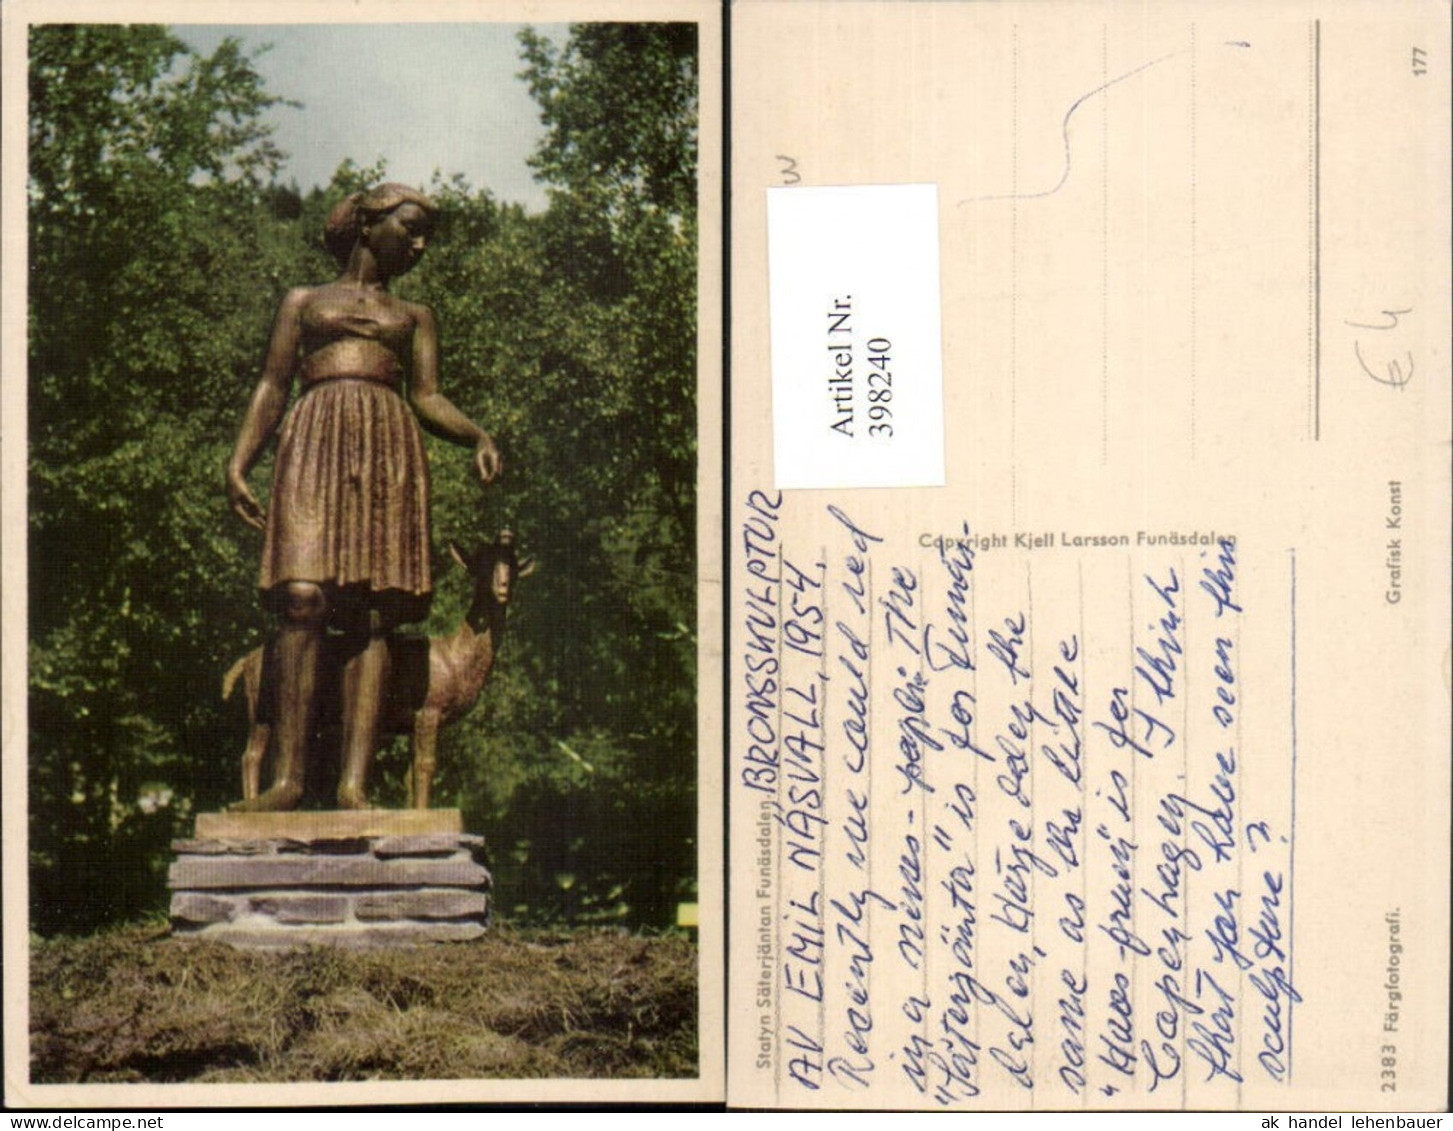 Statyn Säterjäntan Funäsdalen, BRONSSKULPTUR
AV EMIL NÄSVALL, 1954.
Recently we could red
in a news-paper: The
"Säterjänta" is for Funäs-
dalen, Härjedaley the
same as the litle
"Havs-fruen" is for
Copenhagen. I think
that you have seen this
sculpture?
Copyright Kjell Larsson Funäsdalen
Artikel Nr.
398240
€ 4
177
Grafisk Konst
2383 Färgfotografi.
ak handel lehenbauer